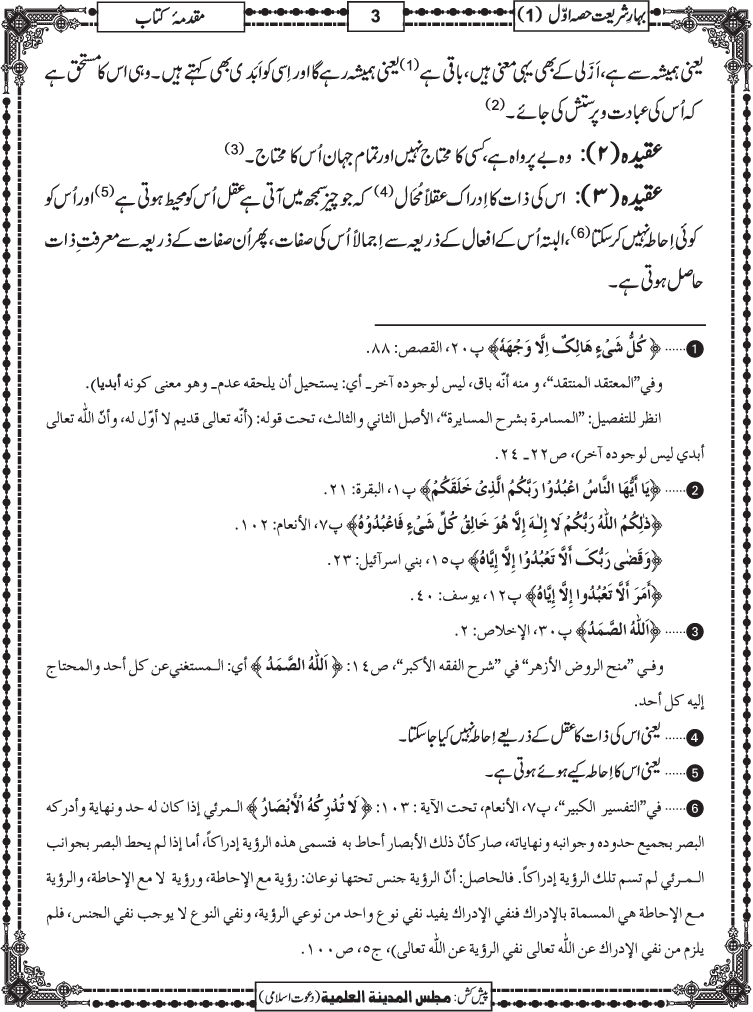 بہارِ شریعت حصہ اوّل (1)
3
مقدمۂ کتاب
یعنی ہمیشہ سے ہے، اَزَلی کے بھی یہی معنی ہیں، باقی ہے (1) یعنی ہمیشہ رہے گا اور اِسی کو اَبَدی بھی کہتے ہیں۔ وہی اس کا مستحق ہے
کہ اُس کی عبادت و پرستش کی جائے۔ (2)
عقیدہ (۲): وہ بے پرواہ ہے، کسی کا محتاج نہیں اور تمام جہان اُس کا محتاج۔ (3)
عقیدہ (۳): اس کی ذات کا اِدراک عقلاً مُحَال (4) کہ جو چیز سمجھ میں آتی ہے عقل اُس کو محیط ہوتی ہے (5) اور اُس کو
کوئی اِحاطہ نہیں کر سکتا (6)، البتہ اُس کے افعال کے ذریعہ سے اِجمالاً اُس کی صفات، پھر اُن صفات کے ذریعہ سے معرفتِ ذات
حاصل ہوتی ہے۔
1 ...... ﴿ كُلُّ شَىْءٍ هَالِکٌ اِلَّا وَجْهَهٗ﴾ پ۲۰، القصص: ۸۸.
وفي ”المعتقد المنتقد“، و منه أنّه باق، ليس لوجوده آخر۔ أي: يستحيل أن يلحقه عدم۔ وهو معنى كونه أبديا).
انظر للتفصيل: ”المسامرة بشرح المسايرة“، الأصل الثاني والثالث، تحت قوله: (أنّه تعالى قديم لا أوّل له، وأنّ الله تعالى
أبدي ليس لوجوده آخر)، ص۲۲۔ ۲٤.
2 ...... ﴿يَا أَيُّهَا النَّاسُ اعْبُدُوْا رَبَّكُمُ الَّذِىْ خَلَقَكُمْ﴾ پ۱، البقرة: ۲۱.
﴿ذٰلِكُمُ اللّٰهُ رَبُّكُمْ لَا إِلٰـهَ إِلَّا هُوَ خَالِقُ كُلِّ شَىْءٍ فَاعْبُدُوْهُ﴾ پ۷، الأنعام: ۱۰۲.
﴿وَقَضٰى رَبُّكَ أَلَّا تَعْبُدُوْا إِلَّا إِيَّاهُ﴾ پ۱۵، بني اسرآئيل: ۲۳.
﴿أَمَرَ أَلَّا تَعْبُدُوا إِلَّا إِيَّاهُ﴾ پ۱۲، يوسف: ٤٠.
3 ...... ﴿اَللّٰهُ الصَّمَدُ﴾ پ۳۰، الإخلاص: ۲.
وفي ”منح الروض الأزهر“ في ”شرح الفقه الأكبر“، ص١٤: ﴿ اَللّٰهُ الصَّمَدُ ﴾ أي: المستغني عن كل أحد والمحتاج
إليه كل أحد.
4 ...... یعنی اس کی ذات کا عقل کے ذریعے اِحاطہ نہیں کیا جا سکتا۔
5 ...... یعنی اس کا اِحاطہ کیے ہوئے ہوتی ہے۔
6 ...... في ”التفسير الكبير“، پ۷، الأنعام، تحت الآية : ۱۰۳: ﴿ لَا تُدْرِكُهُ الْأَبْصَارُ ﴾ المرئي إذا كان له حد ونهاية وأدركه
البصر بجميع حدوده وجوانبه ونهاياته، صار كأنّ ذلك الأبصار أحاط به فتسمى هذه الرؤية إدراكاً، أما إذا لم يحط البصر بجوانب
المرئي لم تسم تلك الرؤية إدراكاً. فالحاصل: أنّ الرؤية جنس تحتها نوعان: رؤية مع الإحاطة، ورؤية لا مع الإحاطة، والرؤية
مع الإحاطة هي المسماة بالإدراك فنفي الإدراك يفيد نفي نوع واحد من نوعي الرؤية، ونفي النوع لا يوجب نفي الجنس، فلم
يلزم من نفي الإدراك عن الله تعالى نفي الرؤية عن الله تعالى)، ج٥، ص۱۰۰.
پیش کش: مجلس المدینة العلمیة (دعوت اسلامی)